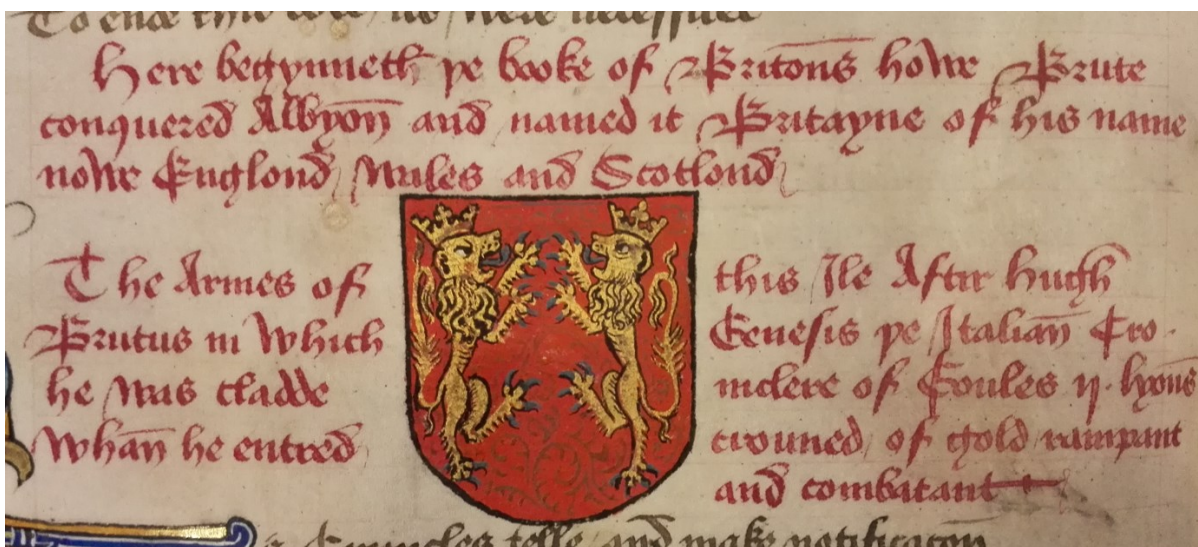 To ende this were necessarie
Here begynneth þe booke of Britons howe Brute
conquered Albyon and named it Britayne of his name
nowe Englond / Wales and Scotlond /
The Armes of
Brutus in which
he was cladde
Whan he entred
this Ile After hugh
Genesis þe Italian Cro
niclere of Goules ij. lyons
crouned / of gold rampant
and combatant
Cronicles telle / and make notificacon